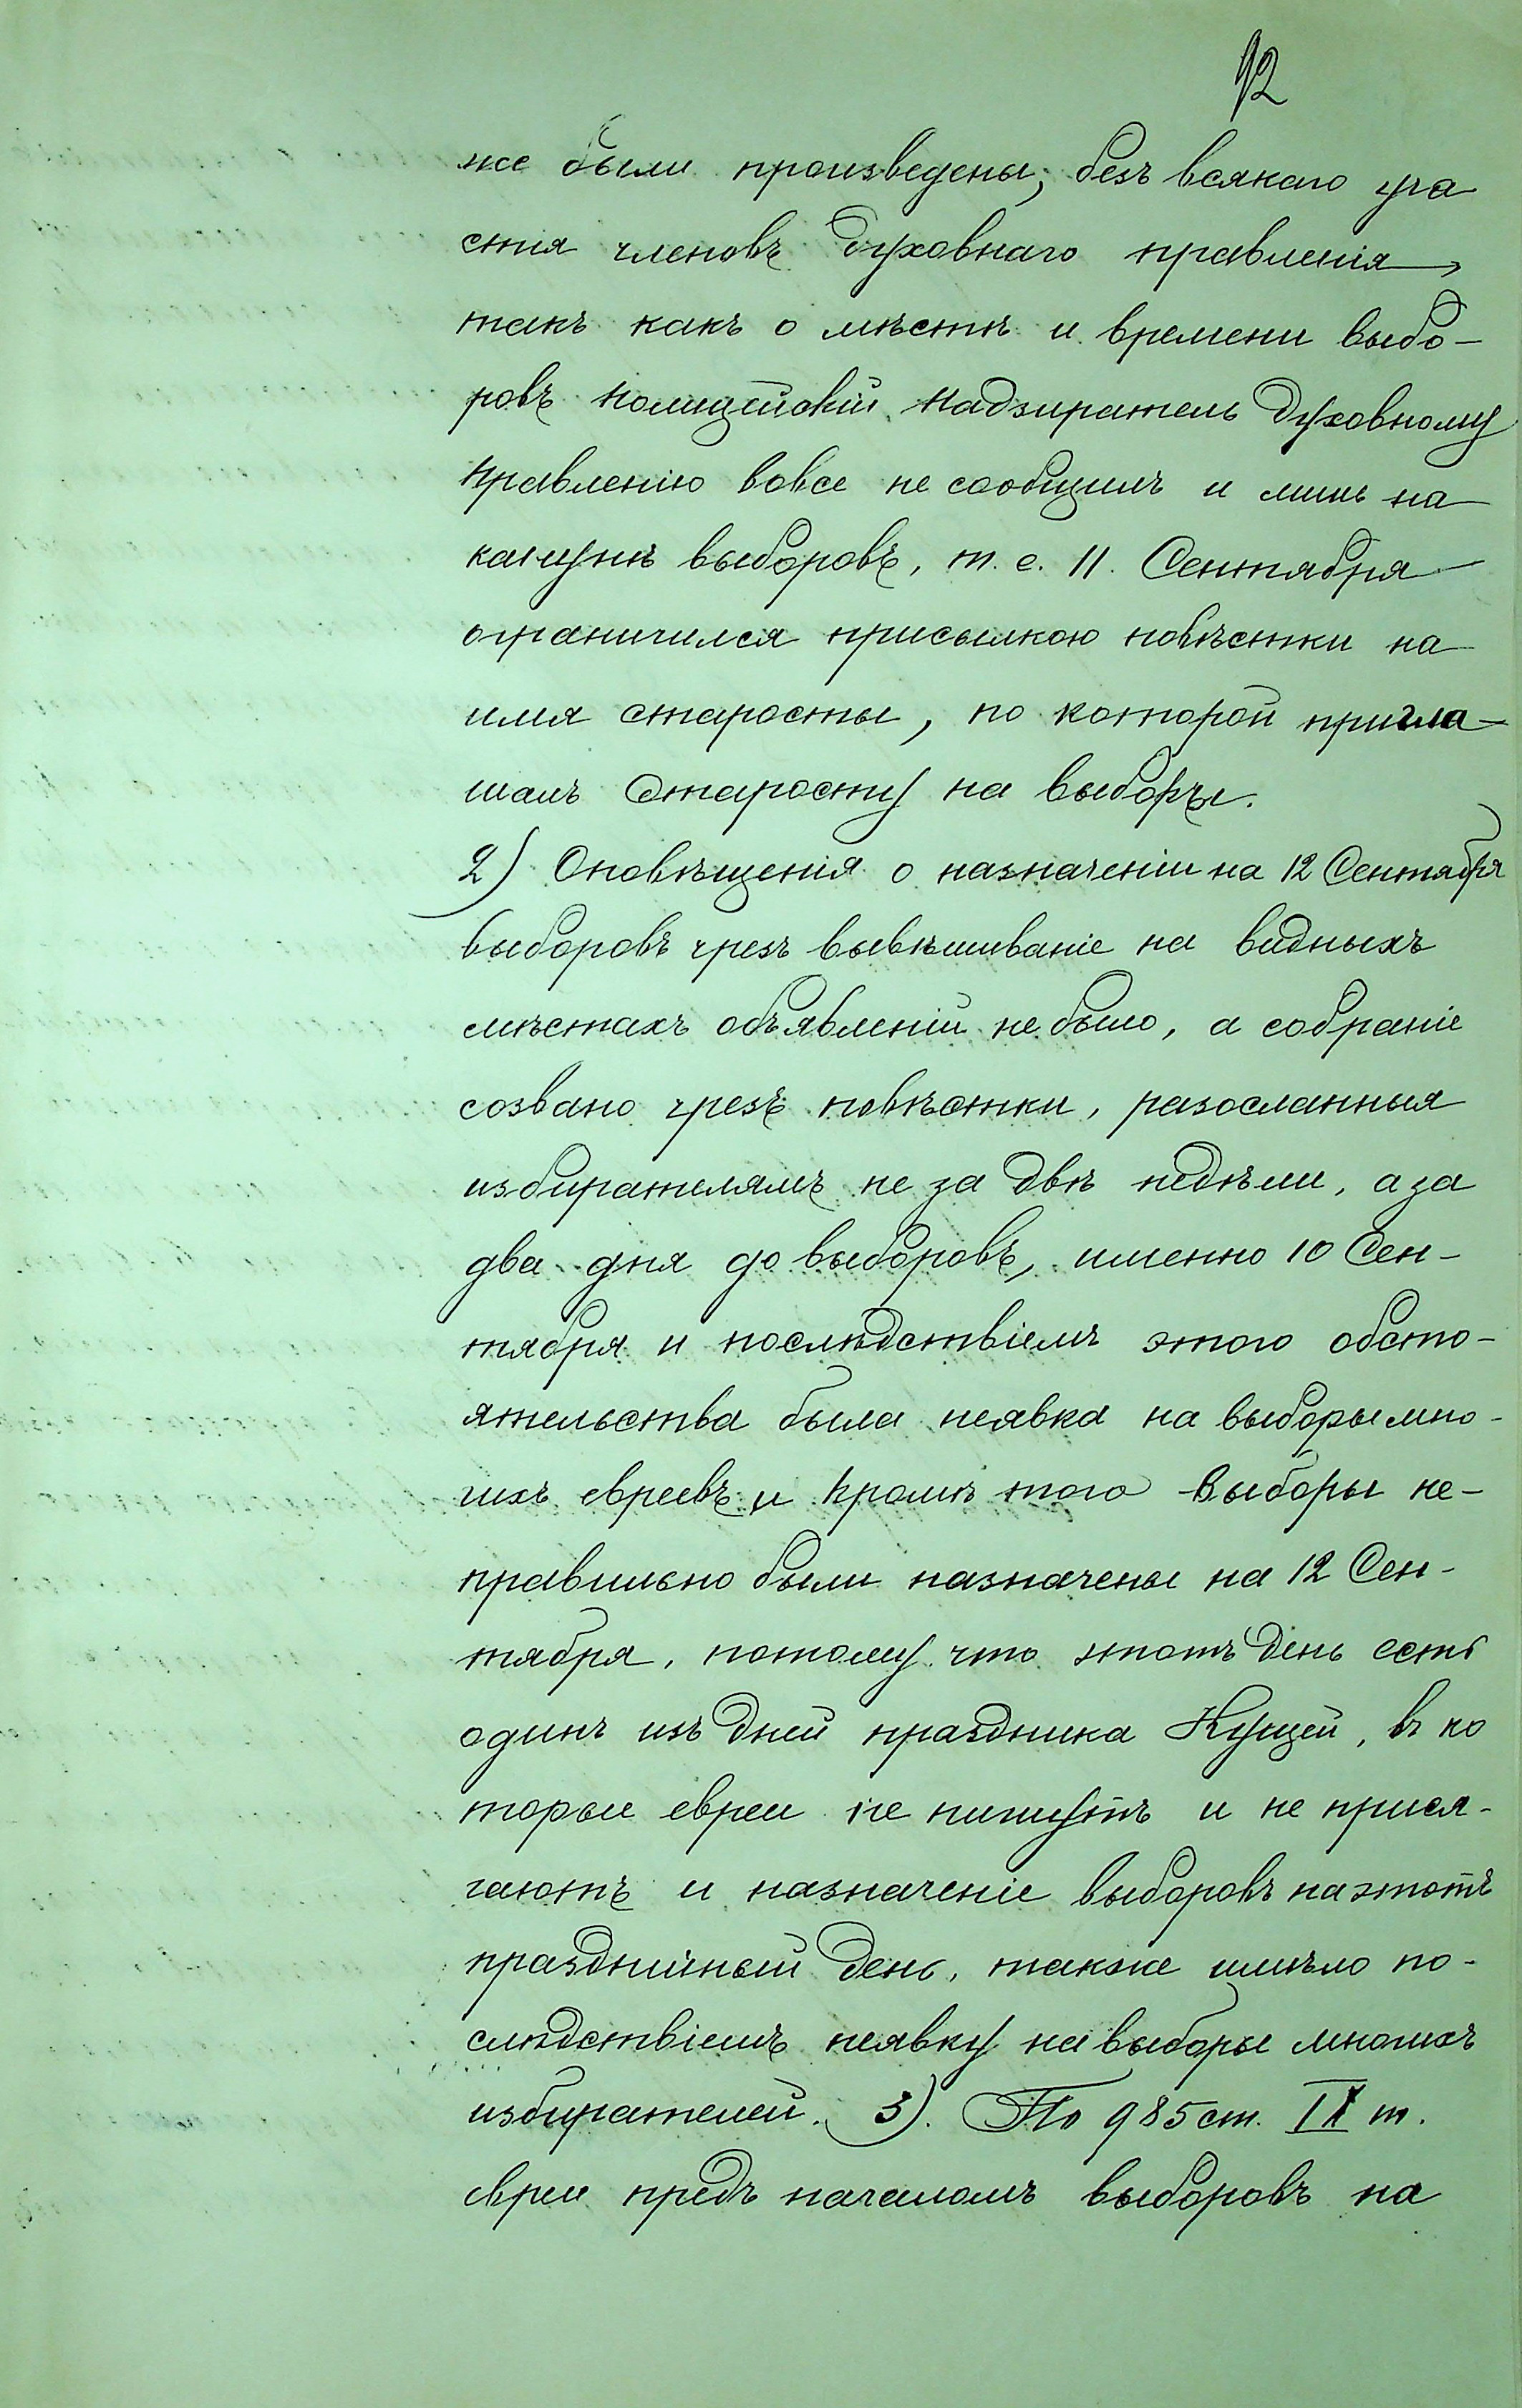 92
же были произведены, безъ всякаго уча
стія членовъ Духовнаго правленія,
такъ какъ о мѣстѣ и времени выбо-
ровъ полицейскій надзиратель Духовному
правленію вовсе не сообщилъ и лишь на
канунѣ выборовъ, т. е. 11. Сентября
ограничился присылкою повѣстки на
имя старосты, по которой пригла-
шалъ Старосту на выборы.
2) Оповѣщенія о назначеніи на 12 Сентября
выборовъ чрезъ вывѣшиваніе на видныхъ
мѣстахъ объявленій не было, а собраніе
созвано чрезъ повѣстки, разосланныя
избирателямъ не за двѣ недѣли, а за
два дня до выборовъ, именно 10 Сен-
тября и послѣдствіемъ этого обсто-
ятельства была неявка на выборы мно-
гихъ евреевъ и кромѣ того выборы не-
правильно были назначены на 12 Сен-
тября, потому что этотъ день есть
одинъ изъ дней праздника Кущей, въ ко
торые евреи не пишутъ и не прися-
гаютъ и назначеніе выборовъ на этотъ
праздничный день, также имѣло по-
слѣдствіемъ неявку на выборы многихъ
избирателей. 3). По 985 ст. IX т.
евреи предъ началомъ выборовъ на